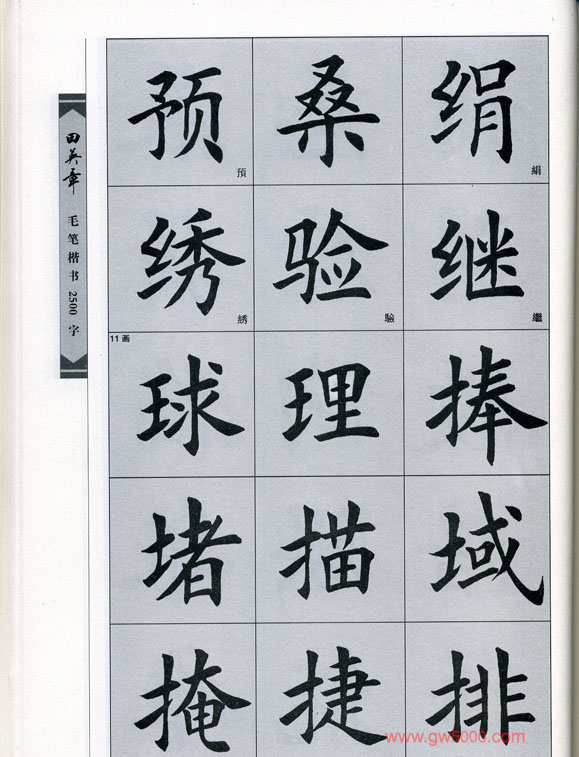 田英章
毛笔楷书2500字
预 桑 绢
預 絹
绣 验 继
綉 驗 繼
11画
球 理 捧
堵 描 域
掩 捷 排
www.gw5000.com